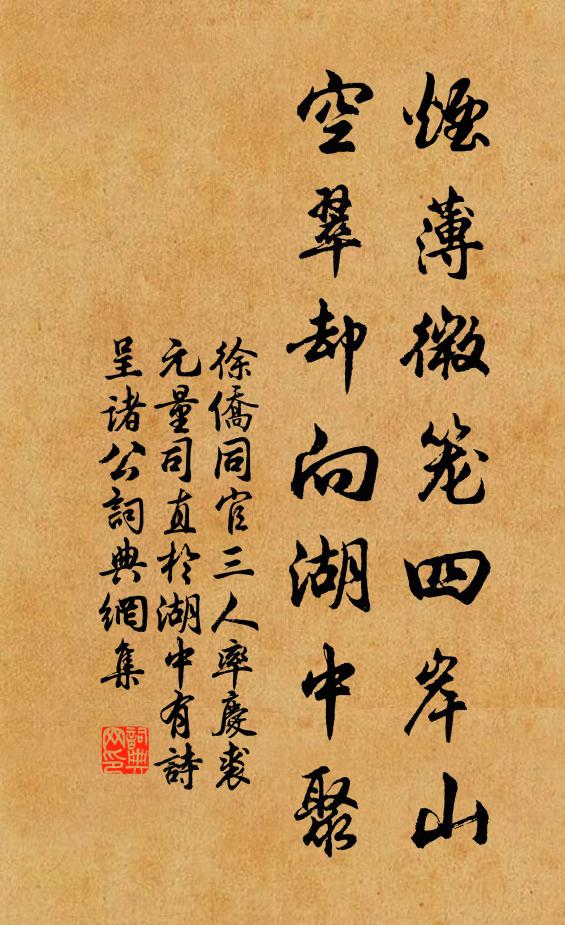 煙薄微笼四岸山
空翠却向湖中聚
徐僑同官三人率慶裘
元量司直於湖中有詩
呈诸公詞典網集
詞典
网印